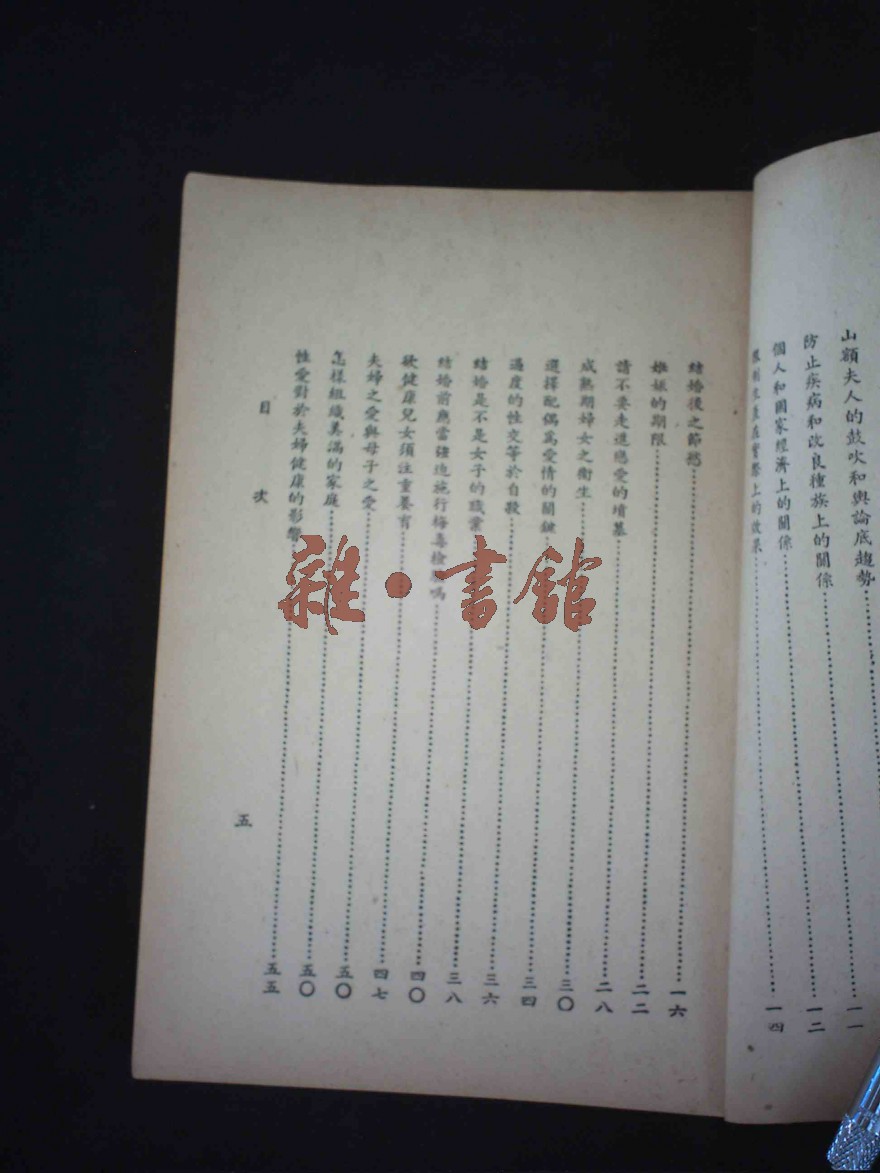 山額夫人的鼓吹和輿論底趨勢……一一
防止疾病和改良種族上的關係……一二
個人和國家經濟上的關係……一四
限制生產在實際上的效果……
結婚後之節慾……一六
姙娠的期限……二二
請不要走進戀愛的墳墓……二八
成熟期婦女之衞生……三〇
選擇配偶為愛情的關鍵……三四
過度的性交等於自殺……三六
結婚是不是女子的職業……三八
結婚前應當強迫施行梅毒檢驗嗎……四〇
欲健康兒女須注重養育……四〇
夫婦之愛與母子之愛……四七
怎樣組織美滿的家庭……五〇
性愛對於夫婦健康的影響……五五
目次
五
雜·書館